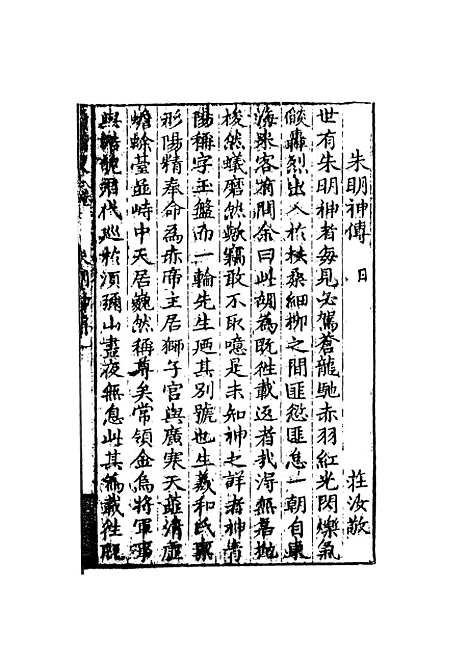 朱明神傳 日 莊汝敬
世有朱明神者每見必駕蒼龍馳赤羽紅光閃爍氣
燄轟烈出入於扶桑細柳之間匪愆匪息一朝自東
海來客有問余曰此胡為既徃載返者我得無若拋
梭然蟻磨然歟竊敢不取噫是未知神之詳者神情
陽稱字玉盤而一輪先生迺其別號也生羲和氏稟
形陽精奉命為赤帝主居獅子宮與廣寒天並清虛
蟾蜍臺並峙中天居巍然稱尊矣常領金烏將軍
與代巡於須彌山晝夜無息此其為載徃